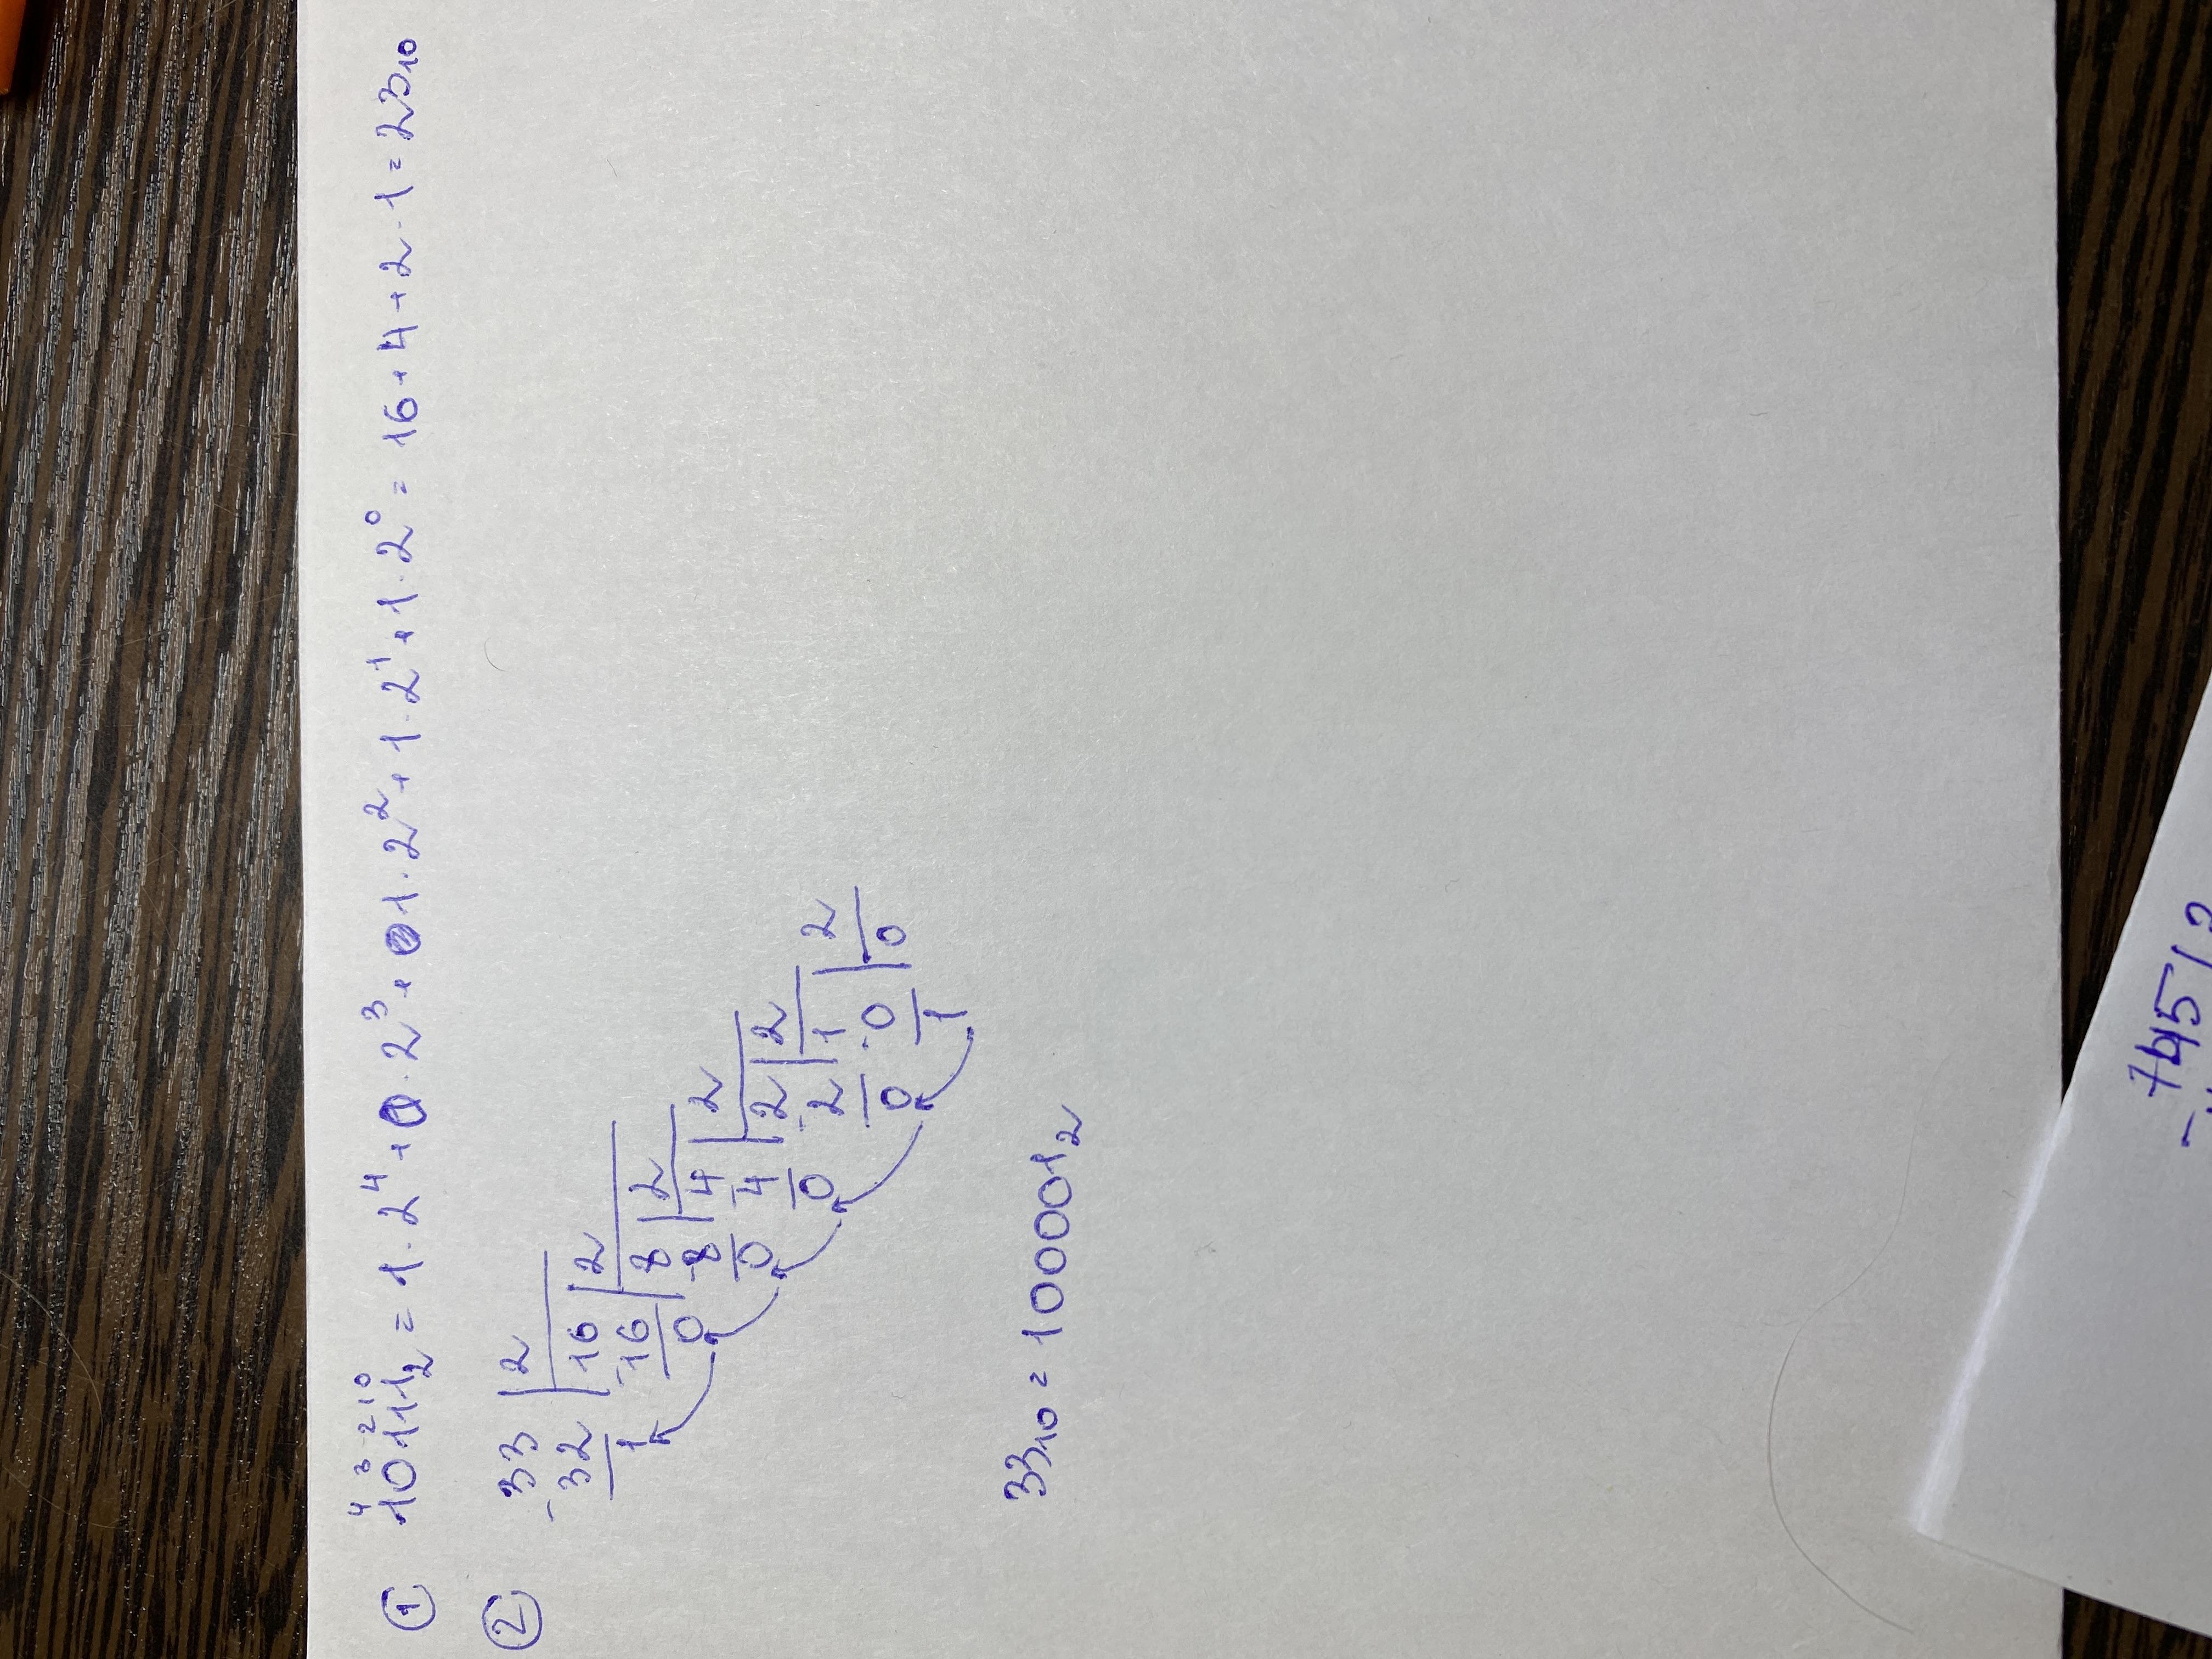 ① 1⁴0³1²1¹1⁰₂ = 1·2⁴+0·2³+1·2²+1·2¹+1·2⁰ = 16+4+2·1=23₁₀
② -33 | 2
-32 | 16 | 2
1 -16 | 8 | 2
0 -8 | 4 | 2
0 -4 | 2 | 2
0 -2 | 1 | 2
0 -0 | 0
1
33₁₀ = 100001₂
745 | 2